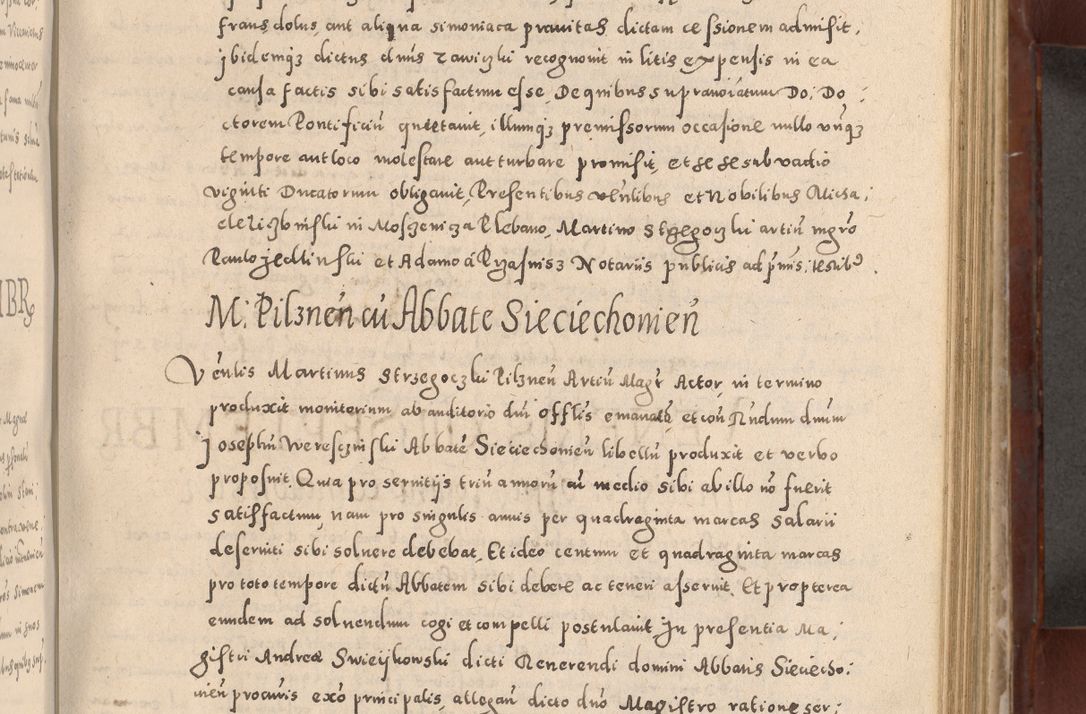 fraus dolus, aut aliqua simoniaca pravitas dictam cessionem admisit,
jbidemqz dictus dnus Zawiczki recognovit in litis expensis in ea
causa factis sibi satisfactum esse, De quibus supranoiatum Do: Do:
ctorem Pontificiu quietavit, illumqz premissorum occasione nullo unqz
tempore aut loco molestare aut turbare promisit, et se sub vadio
viginti Ducatorum obligavit, Presentibus venlibus et Nobilibus Nicra:
in Moszenicza Plebano, Martino Strzegoczki artiu mgro
Paulo Jedlinski et Adamo a Rzasnisz Notariis publicis ad pmis, testib9.
M: Pilznen cu Abbate Sieciechomien
Venlis Martinus Strzegoczki Pilznen Artiu Magr Actor, in termino
produxit monitorium ab auditorio dni offlis emanatu et con Rndum dnum
Josephu Weresczinski Abbate Sieciechomien libellu produxit et verbo
proposuit, Quia pro servitijs triu annoru cu medio sibi ab illo no fuerit
satisfactum, nam pro singulis annis per quadraginta marcas salarii
deserviti sibi solvere debebat, Et ideo centum et quadraginta marcas
pro toto tempore dictu Abbatem sibi debere ac teneri asseruit, Et propterea
eundem ad solvendum cogi et compelli postulavit In presentia Ma:
gistri Andreae Swieijkowski dicti Reverendi domini Abbatis Sieciecho:
vien procuris exo principalis, allegan dicto dno Magistro ratione ser: